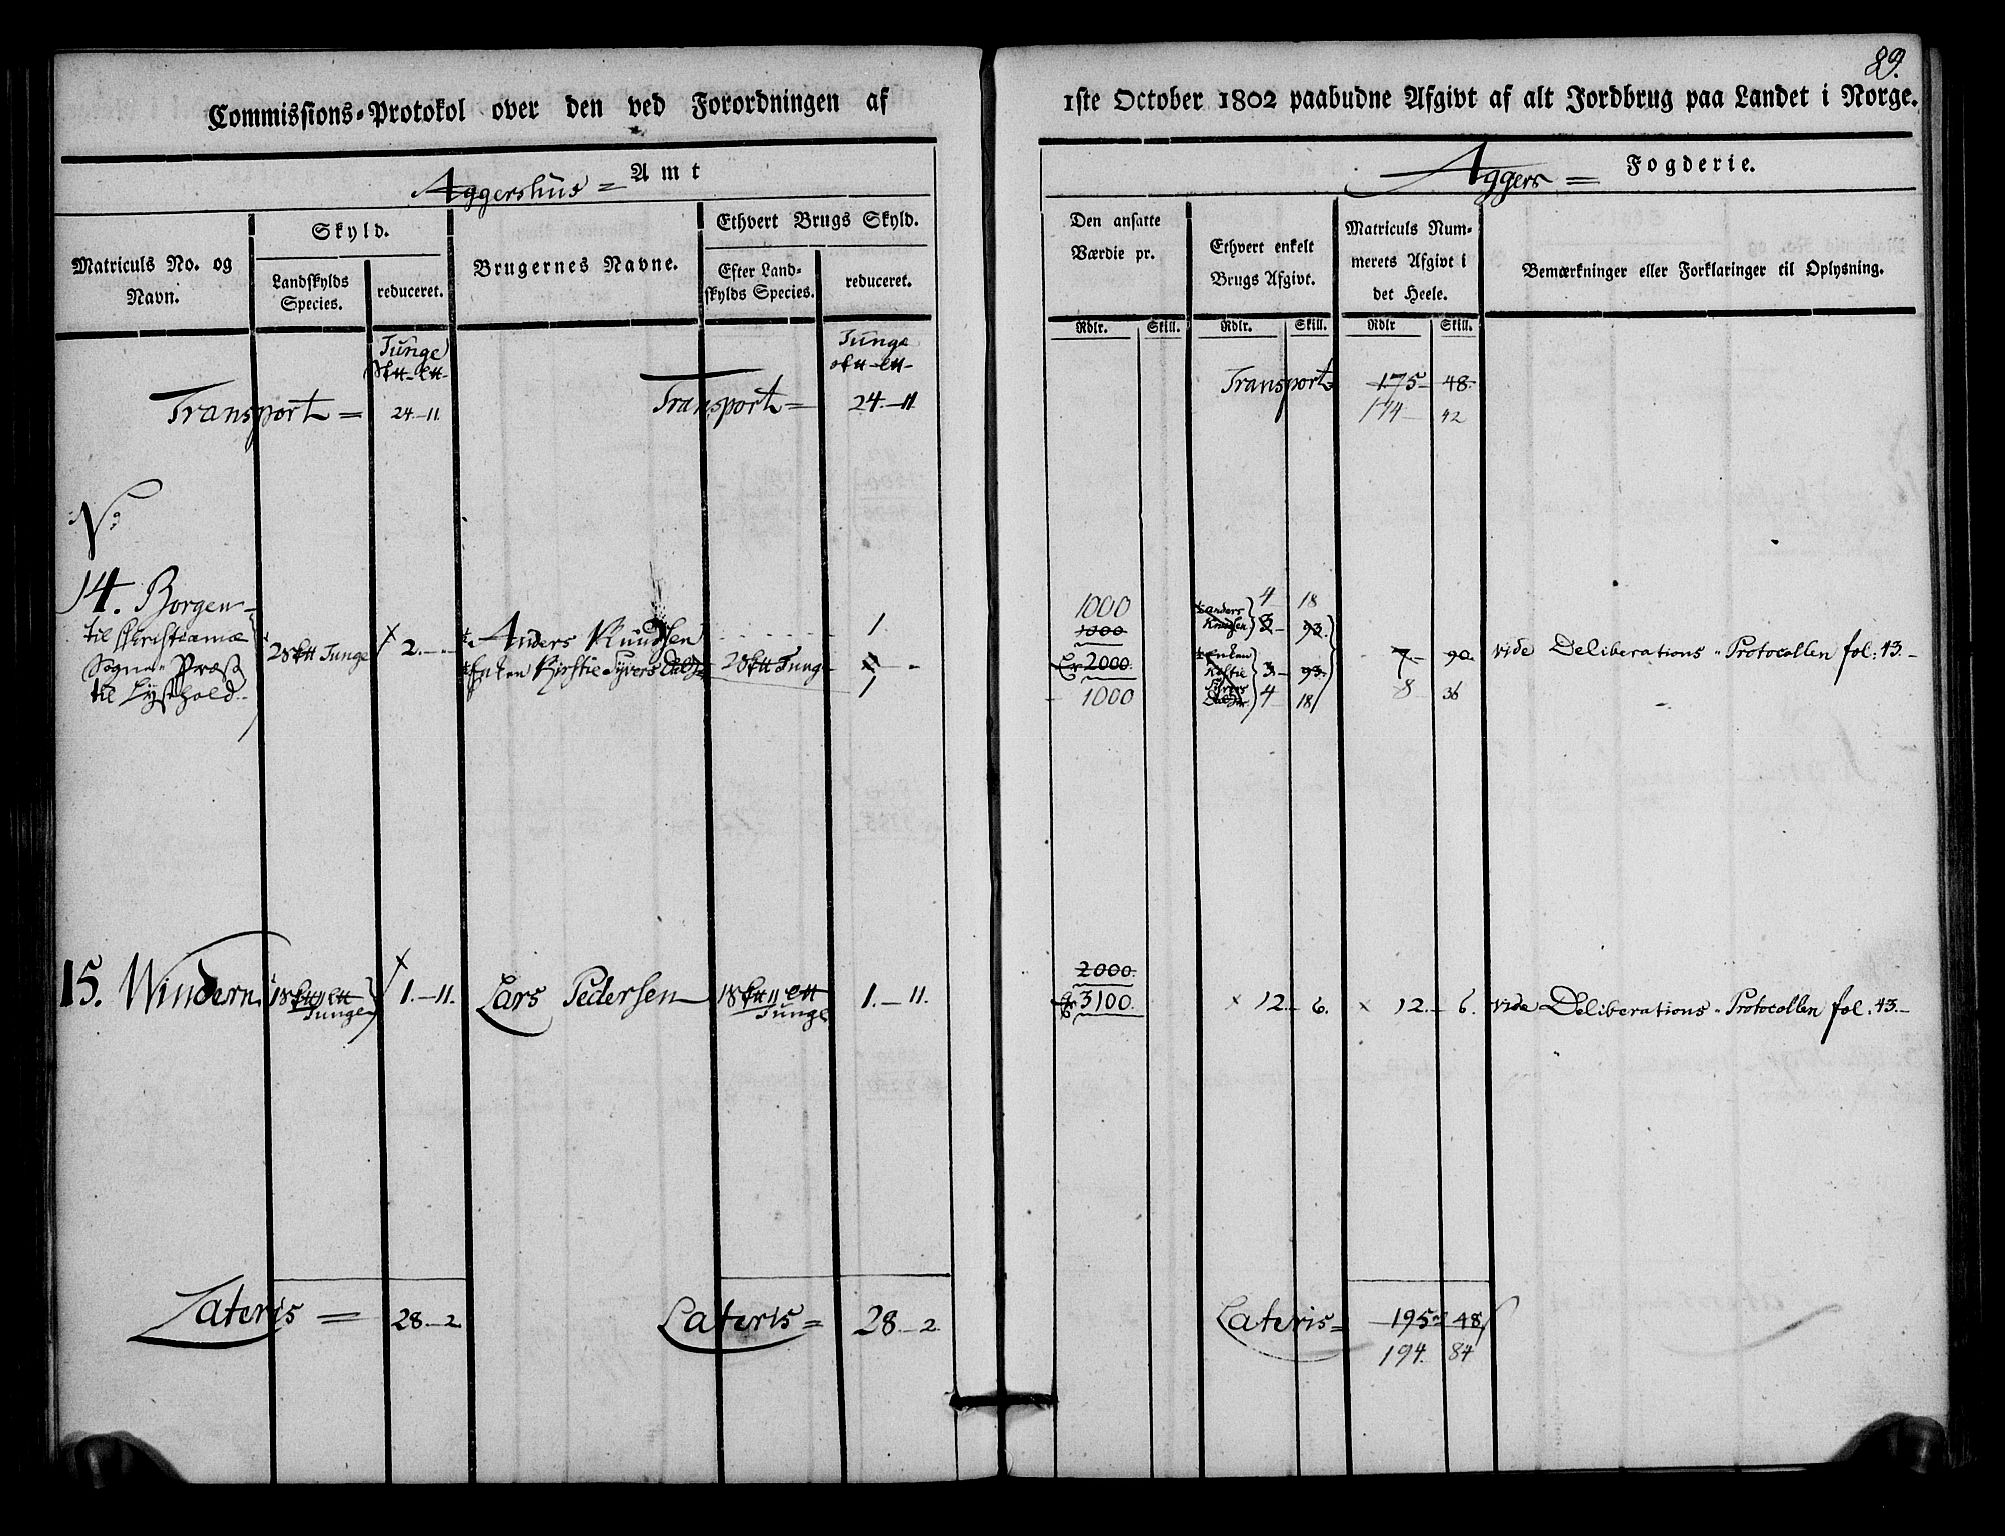 89.
Commissions-Protokol over den ved Forordningen af 1ste October 1802 paabudne Afgivt af alt Jordbrug paa Landet i Norge.
Aggershus = Amt
Aggers = Fogderie.
Matriculs No. og Navn.
Skyld.
Landskylds Species.
reduceret.
Brugernes Navne.
Ethvert Brugs Skyld.
Efter Landskylds Species.
reduceret.
Den ansatte Værdie pr.
Ethvert enkelt Brugs Afgivt.
Matriculs Nummerets Afgivt i det Heele.
Bemærkninger eller Forklaringer til Oplysning.
Rdlr. Skill. Rdlr. Skill. Rdlr Skill.
Tunge
Tunge
Transport = 24.-11. Transport = 24.-11. Transport 175- 48-
174- 42
No
14. Borgen
til Christiania
Sogne Præst
til Lysthold.
2 Tunge 2.
Anders Knudsen 1
Enken Kirstie Syvers 2 Tung 1
1000
1000
Er 2000.
1000
Anders Knudsen 4 18
3- 93.
Enken 3- 93.
4 18
7- 90.
8 36
vide Deliberations-Protocollen fol: 43.-
15. Windern 1 11 Tunge 1.-11. Lars Pedersen 1 11 Tunge 1.-11.
2000.
Er 3100.
× 12.- 6. × 12.- 6. vide Deliberations-Protocollen fol: 43.-
Lateris = 28.-2 Lateris = 28.-2. Lateris = 195- 48
194. 84